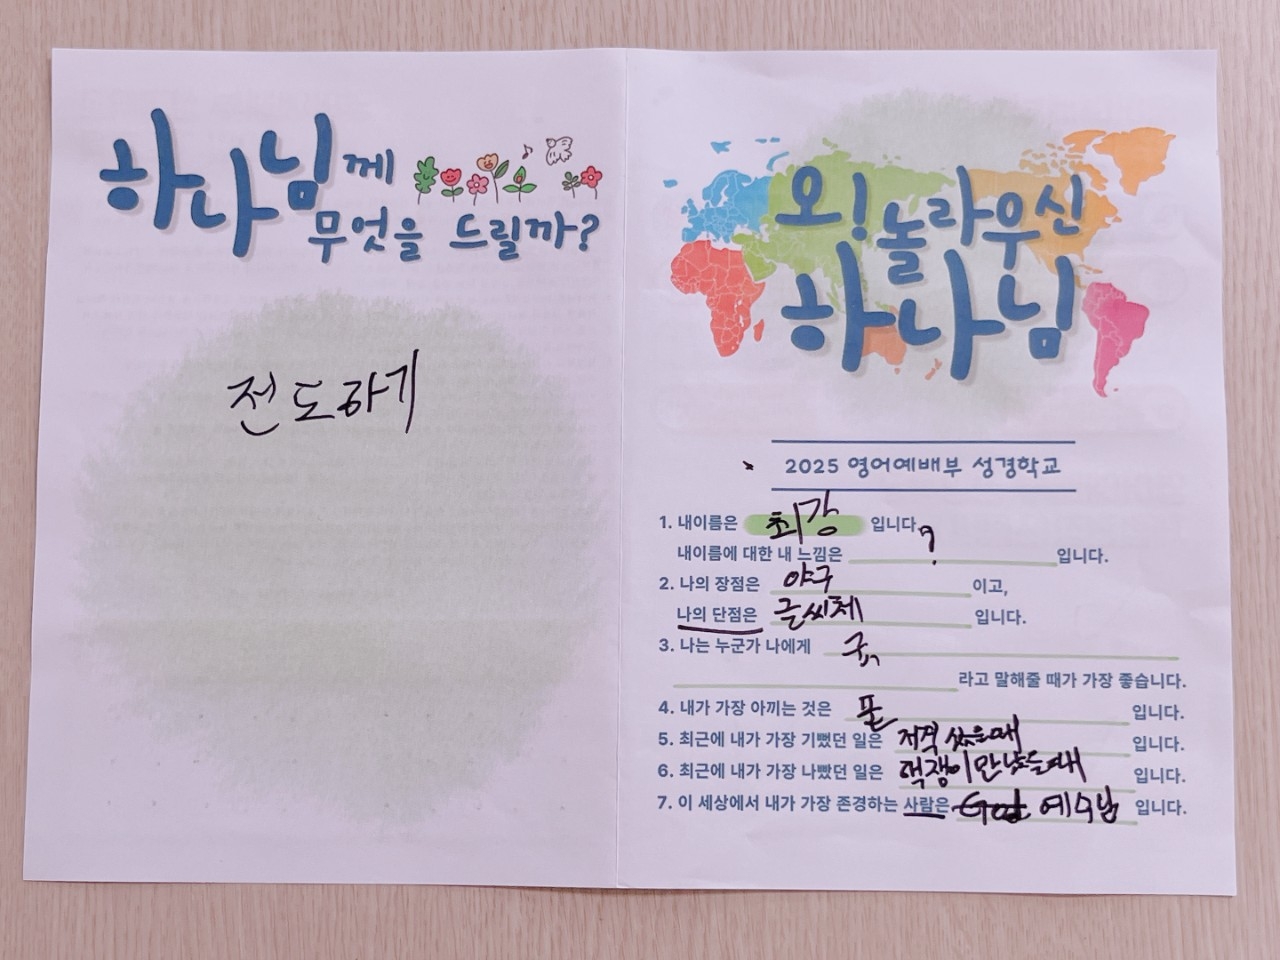 하나님께
무엇을 드릴까?
전도하기
오! 놀라우신
하나님
2025 영어예배부 성경학교
1. 내이름은 최강 입니다.
내이름에 대한 내 느낌은 ? 입니다.
2. 나의 장점은 야구 이고,
나의 단점은 글씨체 입니다.
3. 나는 누군가 나에게 굿
라고 말해줄 때가 가장 좋습니다.
4. 내가 가장 아끼는 것은 폰 입니다.
5. 최근에 내가 가장 기뻤던 일은 저격 입니다.
6. 최근에 내가 가장 나빴던 일은 만났을때 입니다.
7. 이 세상에서 내가 가장 존경하는 사람은 God 예수님 입니다.